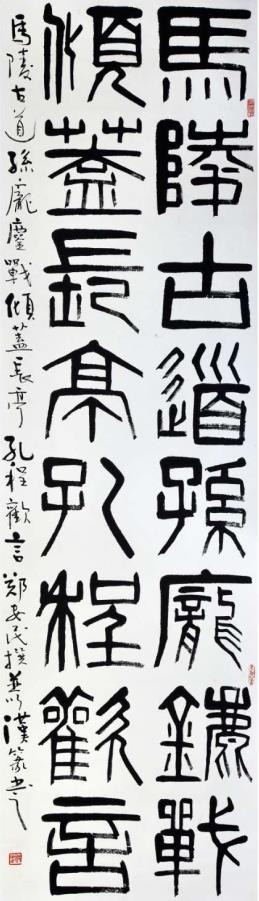 馬陵古道孫龐鏖戰
傾蓋長亭孔程歡言
馬陵古道孫龐鏖戰傾蓋長亭孔程歡言鄭安民撰並以漢篆書之